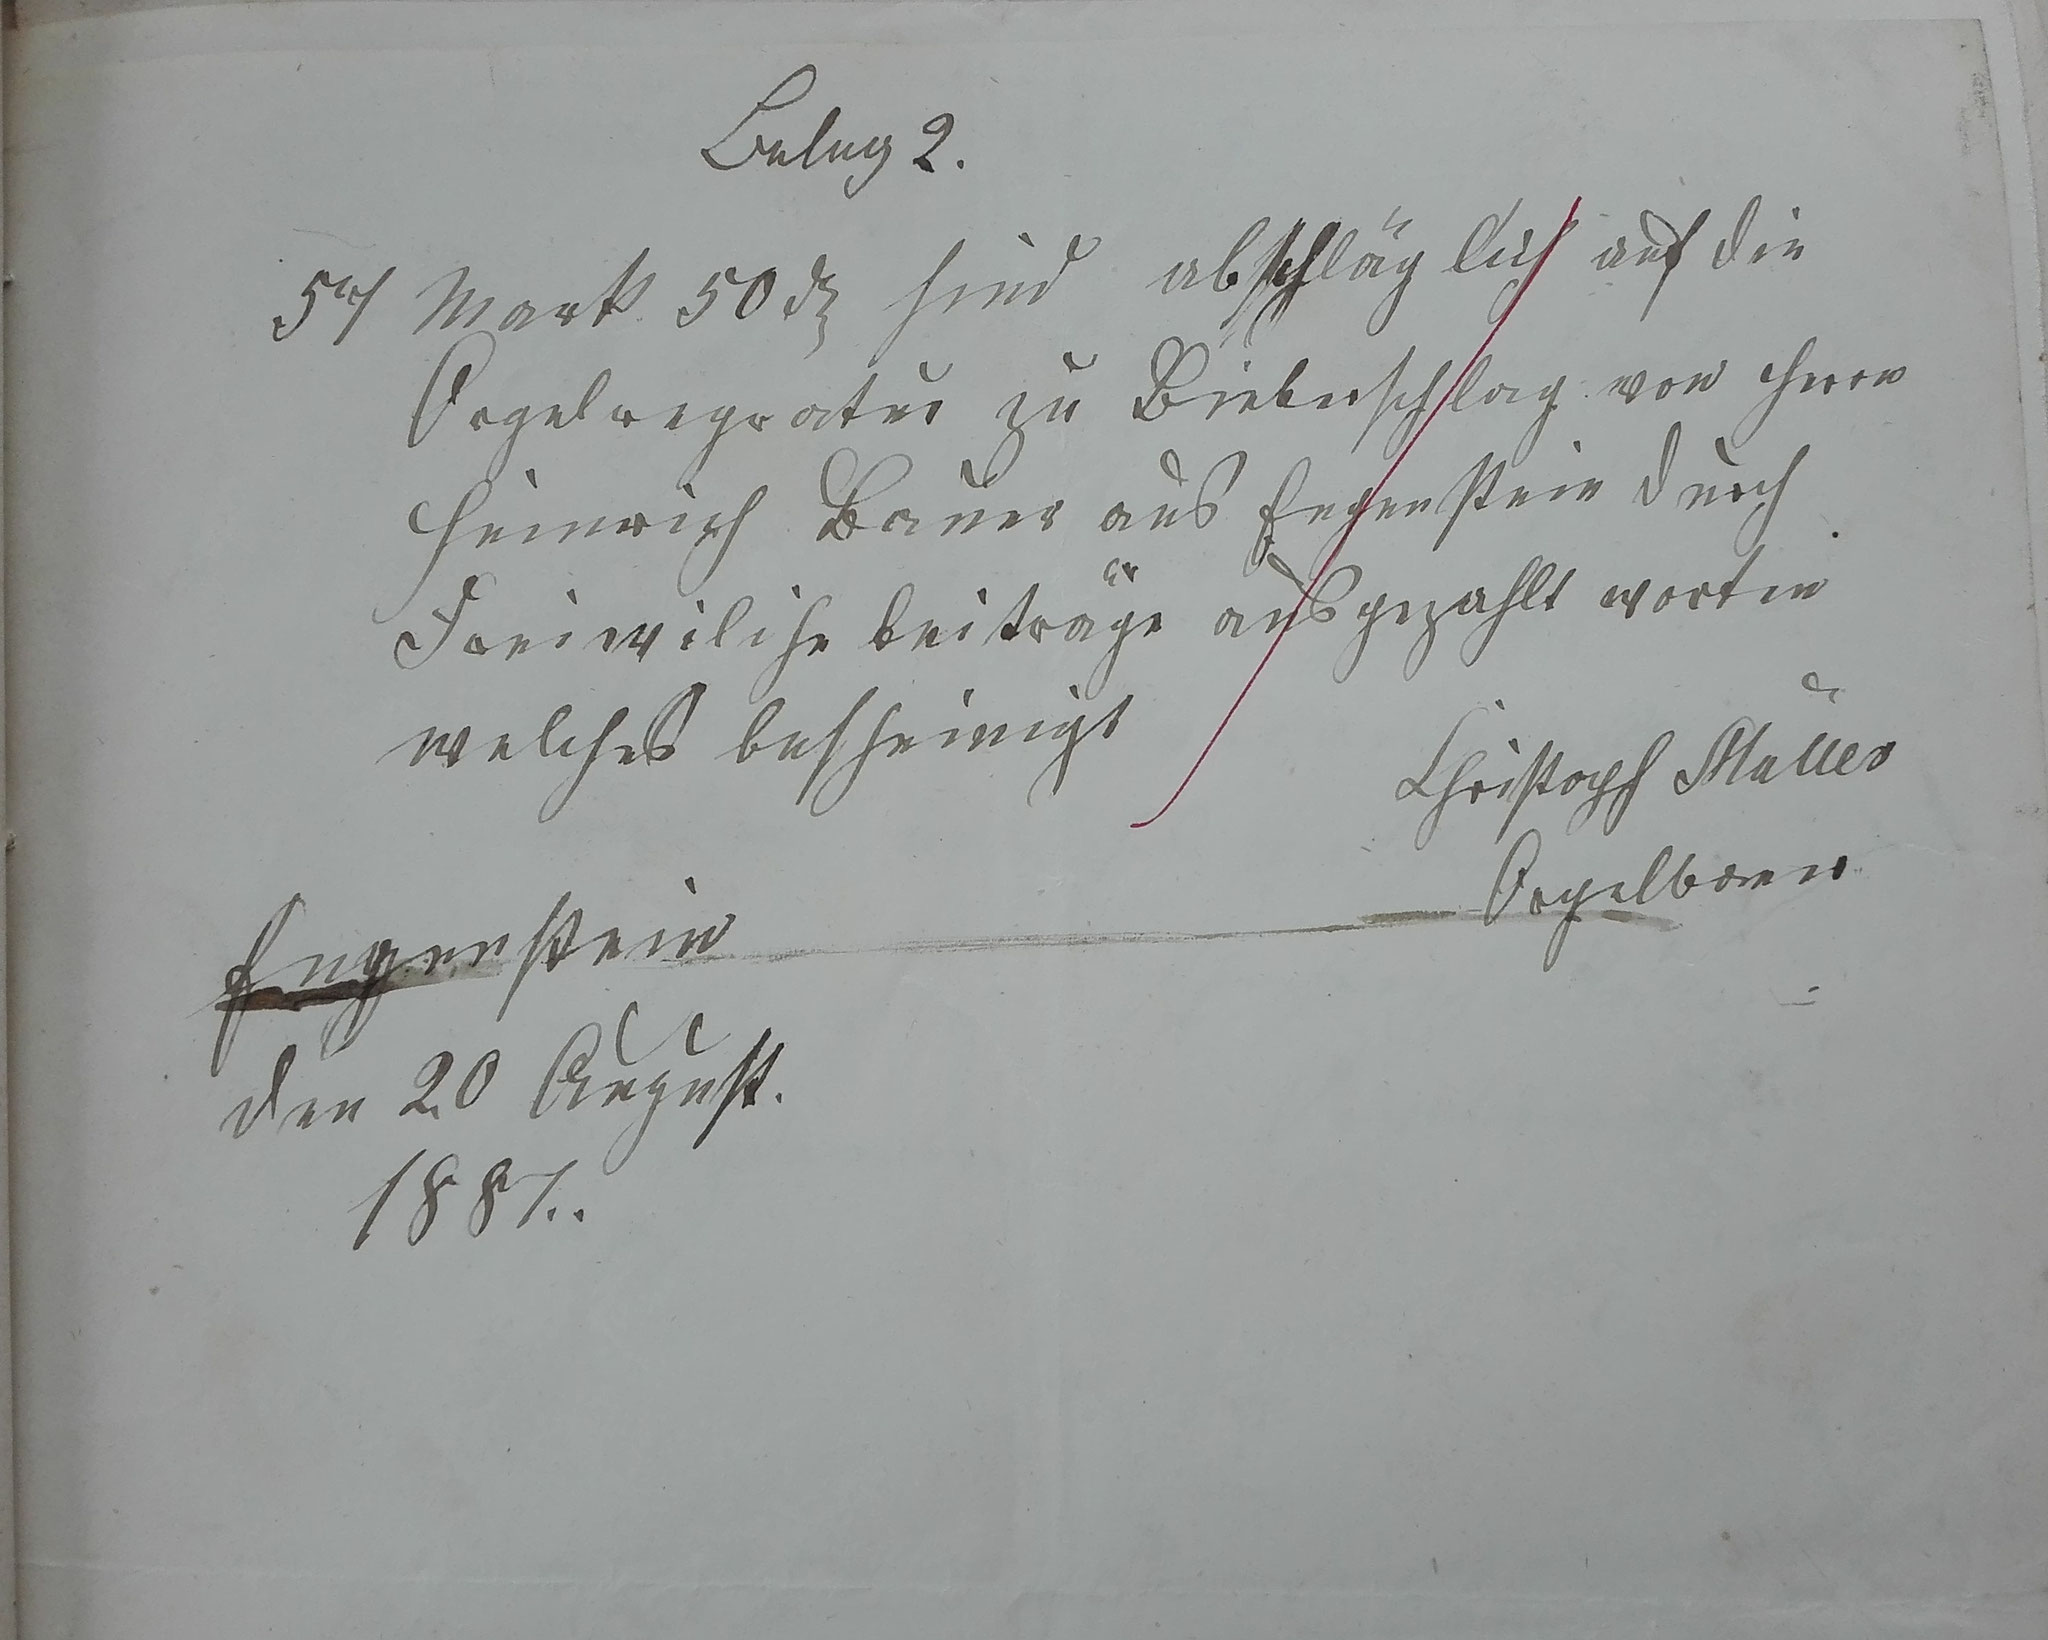 Beleg 2.
57 Mark 50 ₰ sind abschläglich auf die
Orgelrepratur zu Bieberschlag von Herrn
Heinrich Bauer aus Engenstein durch
Freiwiliche beiträge ausgezahlt worten
welches bescheinigt
Christoph Müller
Orgelbauer
Engenstein
den 20 August.
1887..